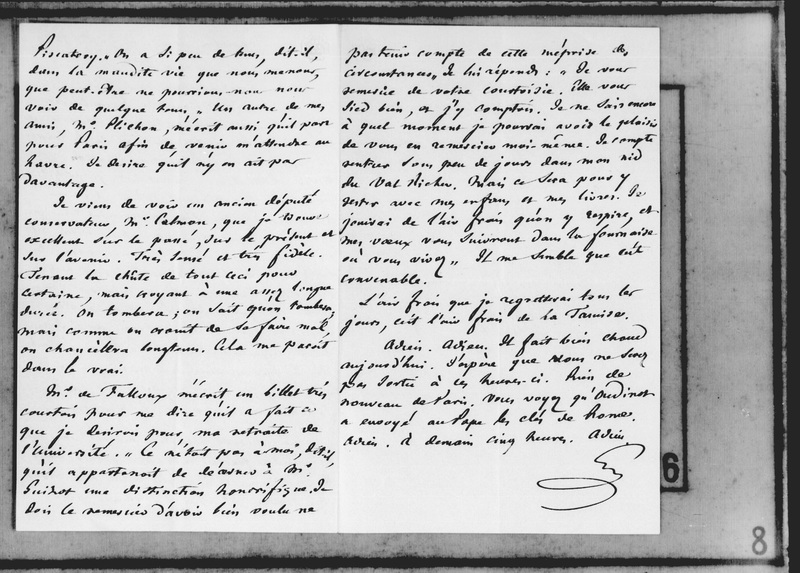 Piscatory. "On a si peu de tems, dit-il,
dans la maudite vie que nous menons,
que peut-être ne pourrions-nous nous
voir de quelque tems." Un autre de mes
amis, Mr. Plichon, m'écrit aussi qu'il part
pour Paris afin de venir m'attendre au
havre. Je desire qu'il n'y en ait pas
davantage.
Je viens de voir un ancien député
conservateur, Mr. Calmon, que je trouve
excellent sur le passé, sur le présent et
sur l'avenir. Très sensé et très fidèle.
Tenant la chûte de tout ceci pour
certaine, mais croyant à une assez longue
durée. On tombera; on sait qu'on tombera,
mais comme on craint de se faire mal,
on chancellera longtems. Cela me paroît
dans le vrai.
Mr. de Falloux m'écrit un billet très
courtois pour me dire qu'il a fait ce
que je desirois pour ma retraite de
l'Université. "Ce n'étoit pas à moi, dit-il,
qu'il appartenoit de décerner à Mr.
Guizot une distinction honorifique. Je
dois le remercier d'avoir bien voulu ne
pas tenir compte de cette méprise des
circonstances." Je lui réponds: "Je vous
remercie de votre courtoisie. Elle vous
sied bien, et j'y comptois. Je ne sais encore
à quel moment je pourrai avoir le plaisir
de vous en remercier moi-même. Je compte
rentrer sous peu de jours dans mon nid
du Val Richer. Mais ce sera pour y
rester avec mes enfans et mes livres. Je
jouirai de l'air frais qu'on y respire, et
mes vœux vous suivront dans la fournaise
où vous vivez." Il me semble que c'est
convenable.
L'air frais que je regretterai tous les
jours, c'est l'air frais de la Tamise.
Adieu. Adieu. Il fait bien chaud
aujourd'hui. J'espère que vous ne serez
pas sortie à ces heures-ci. Rien de
nouveau de Paris. Vous voyez qu'Oudinot
a envoyé au Pape les clés de Rome.
Adieu. à demain cinq heures. Adieu
6
8